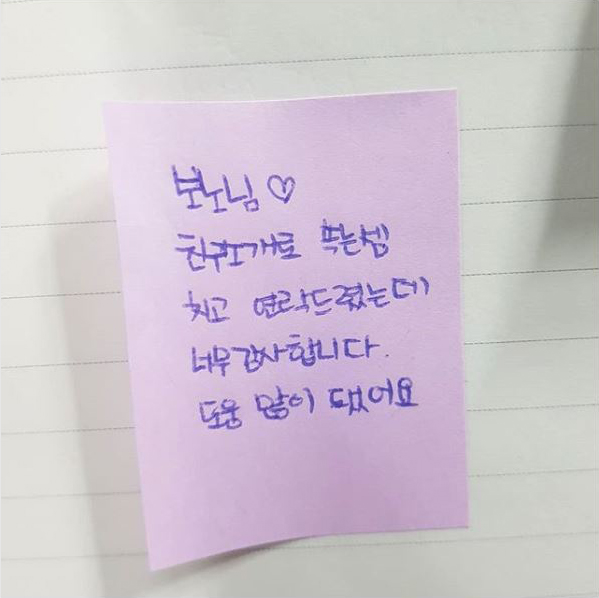 보노님 ♡
친구소개로 뜨는셈
치고 연락드렸는데
너무 감사합니다.
도움 많이 됐어요